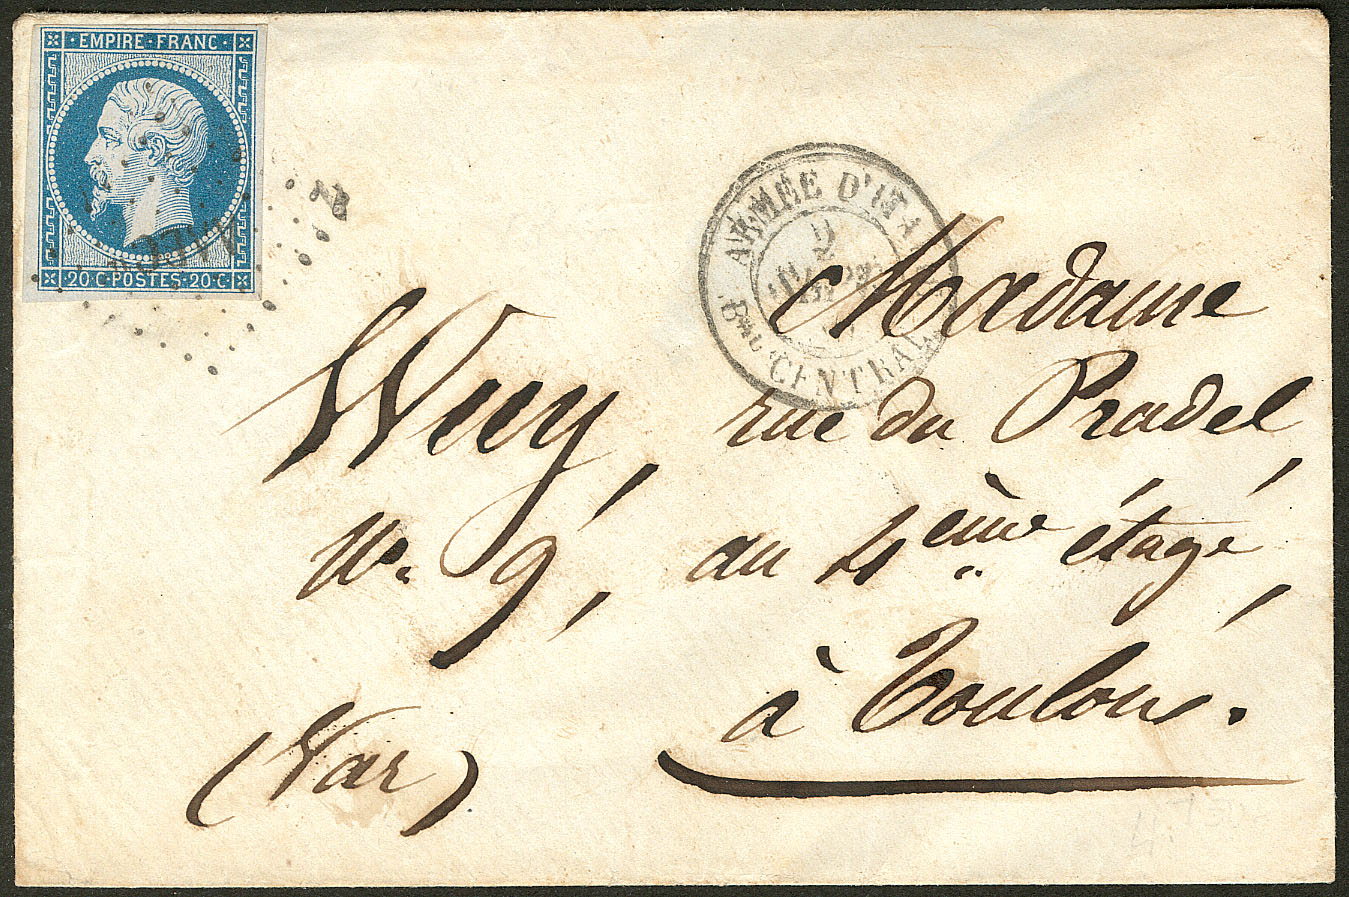 EMPIRE·FRANC·
20·C·POSTES·20·C·
ARMÉE D'ITA
2
Bau CENTRAL
Madame
Wuy, rue du Pradel,
No. 9, au 4ème étage,
à Toulon.
(Var)